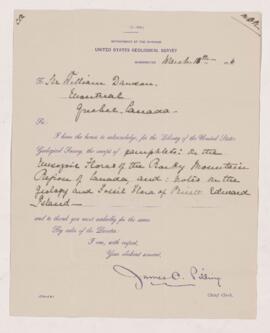 DEPARTMENT OF THE INTERIOR
UNITED STATES GEOLOGICAL SURVEY
WASHINGTON March 18th
To Sir William Dawson
Montreal
Quebec Canada
Sir:
I have the honor to acknowledge, for the Library of the United States
Geological Survey, the receipt of pamphlets: On the
Mesozoic Floras of the Rocky Mountain
Region of Canada, and: Notes on the
Geology and Fossil Flora of Prince Edward
Island
and to thank you most cordially for the same
By order of the Director.
I am, with respect,
Your obedient servant,
James C. Pilling
Chief Clerk.